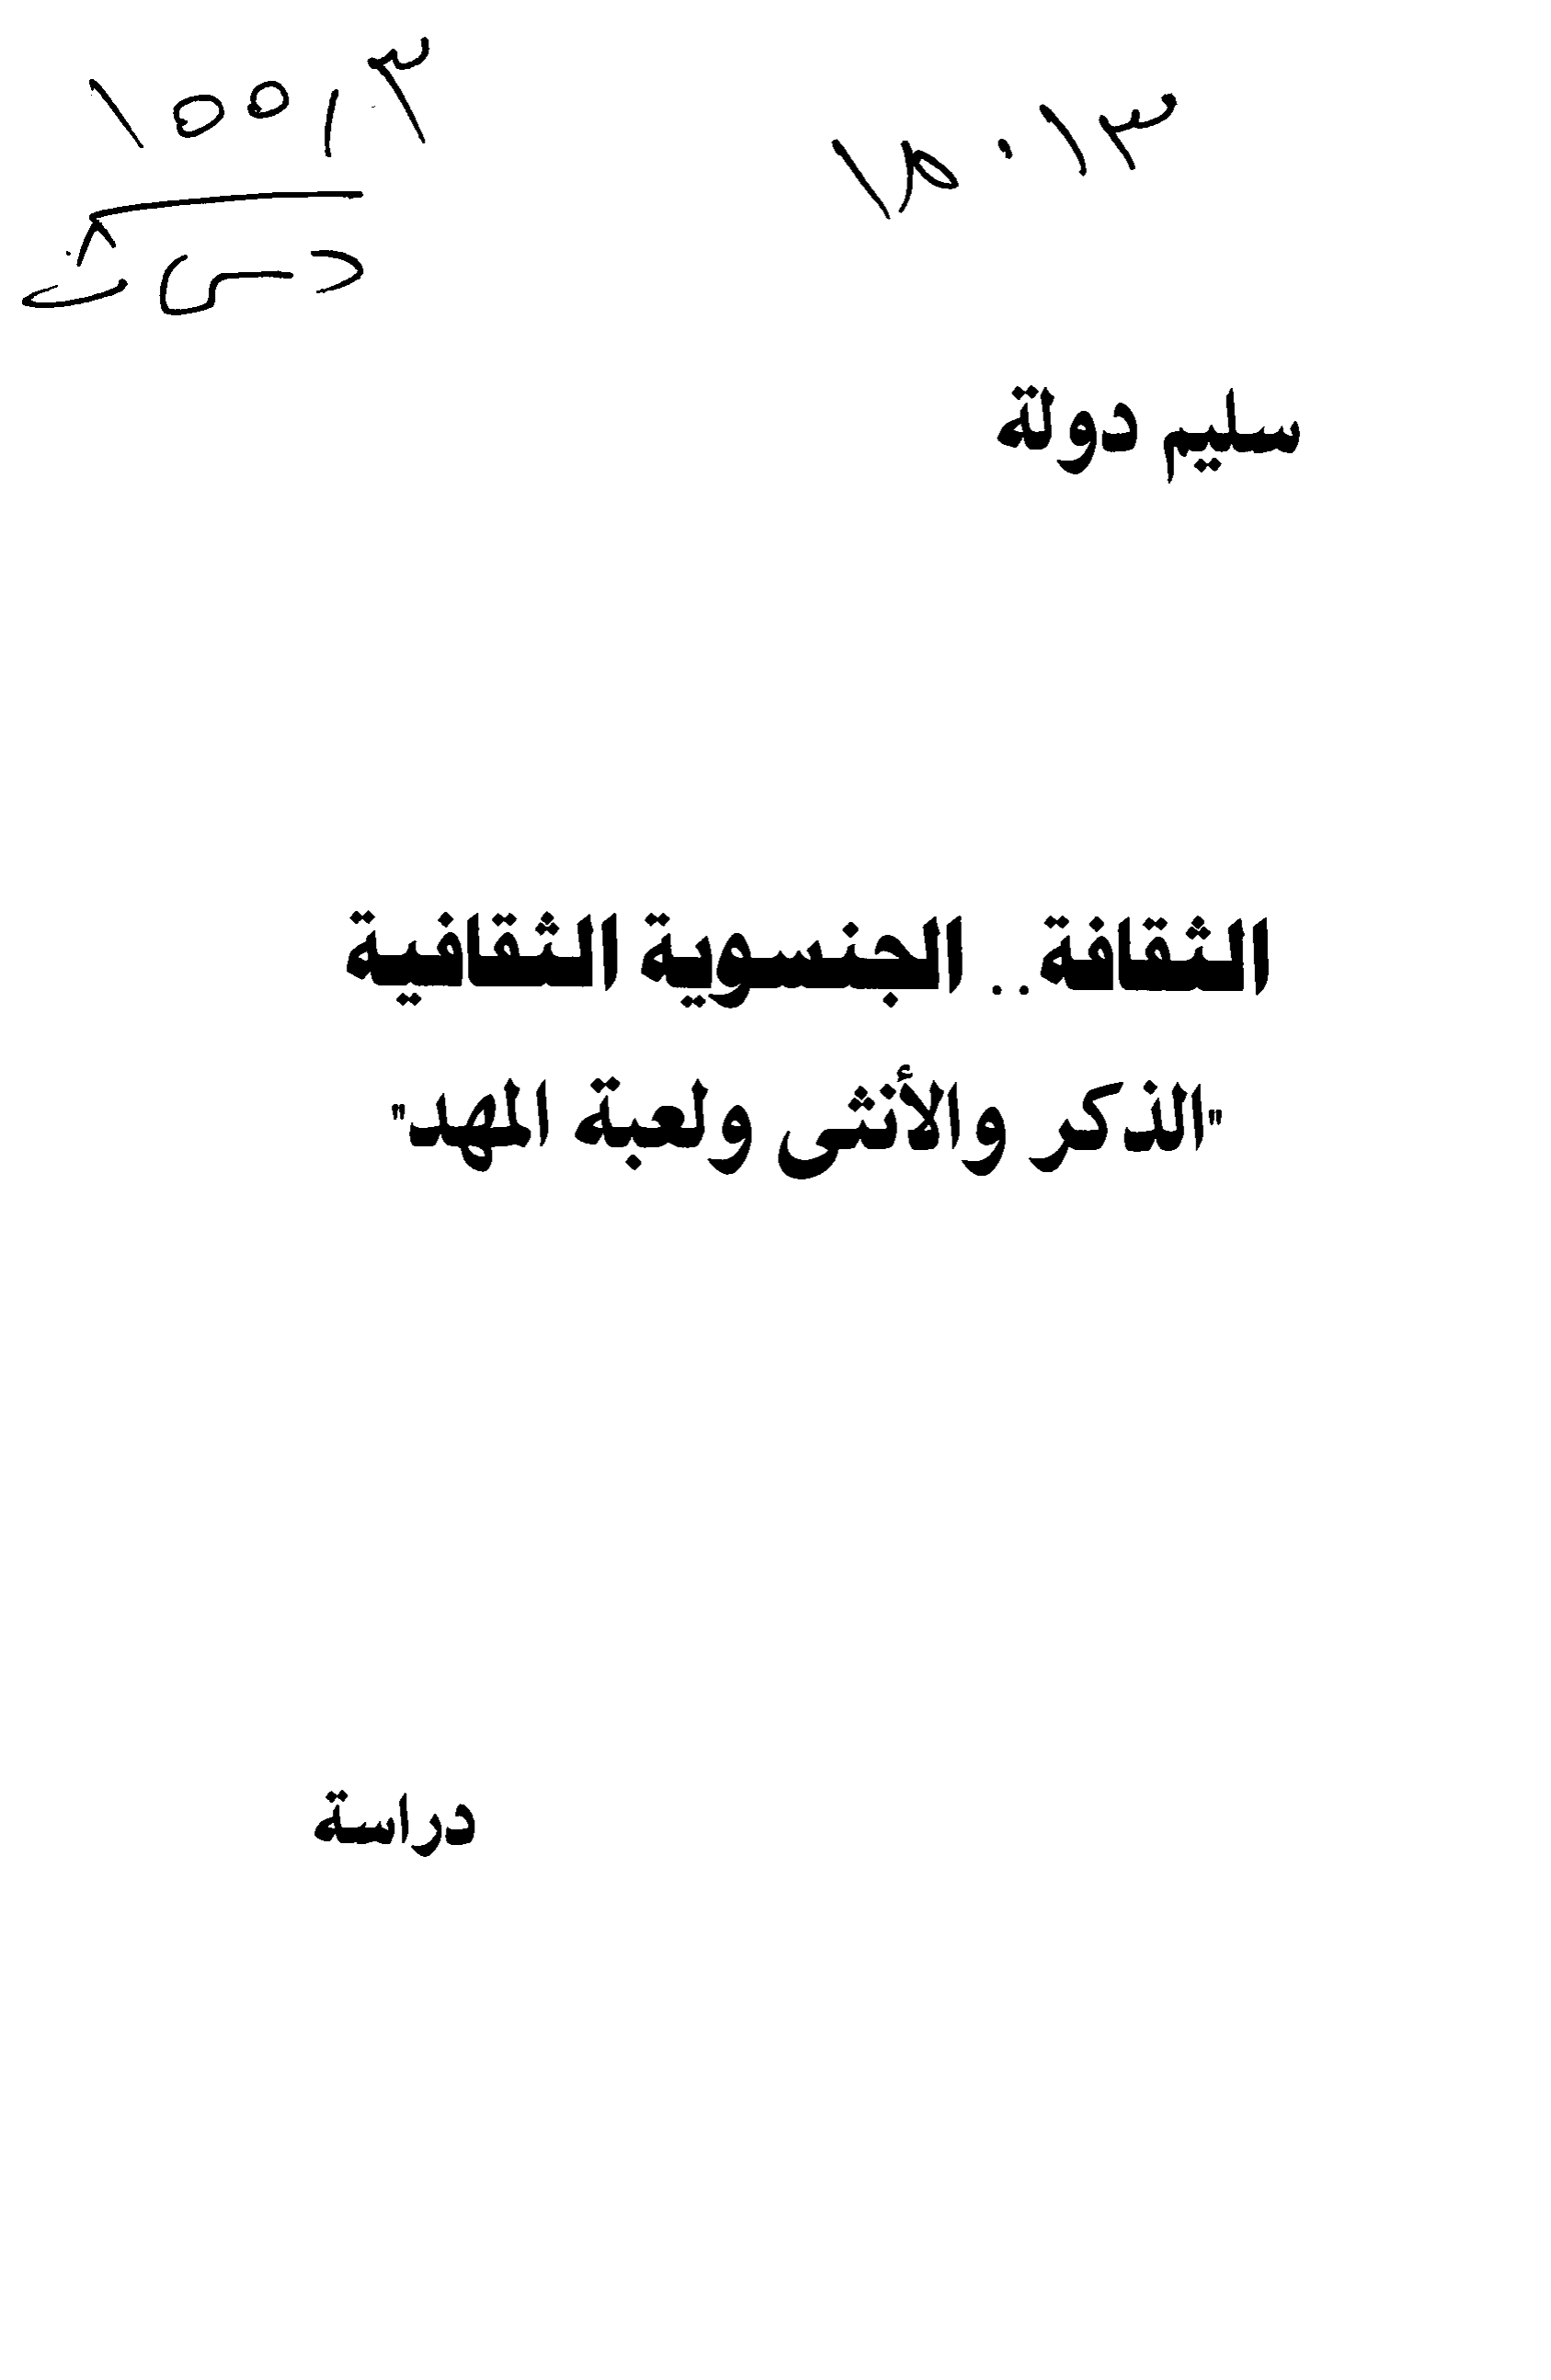 ١٥٥,٣
١٥٠١٣
د س ث
سليم دولة
الثقافة.. الجنسوية الثقافية
"الذكر والأنثى ولعبة المهد"
دراسة